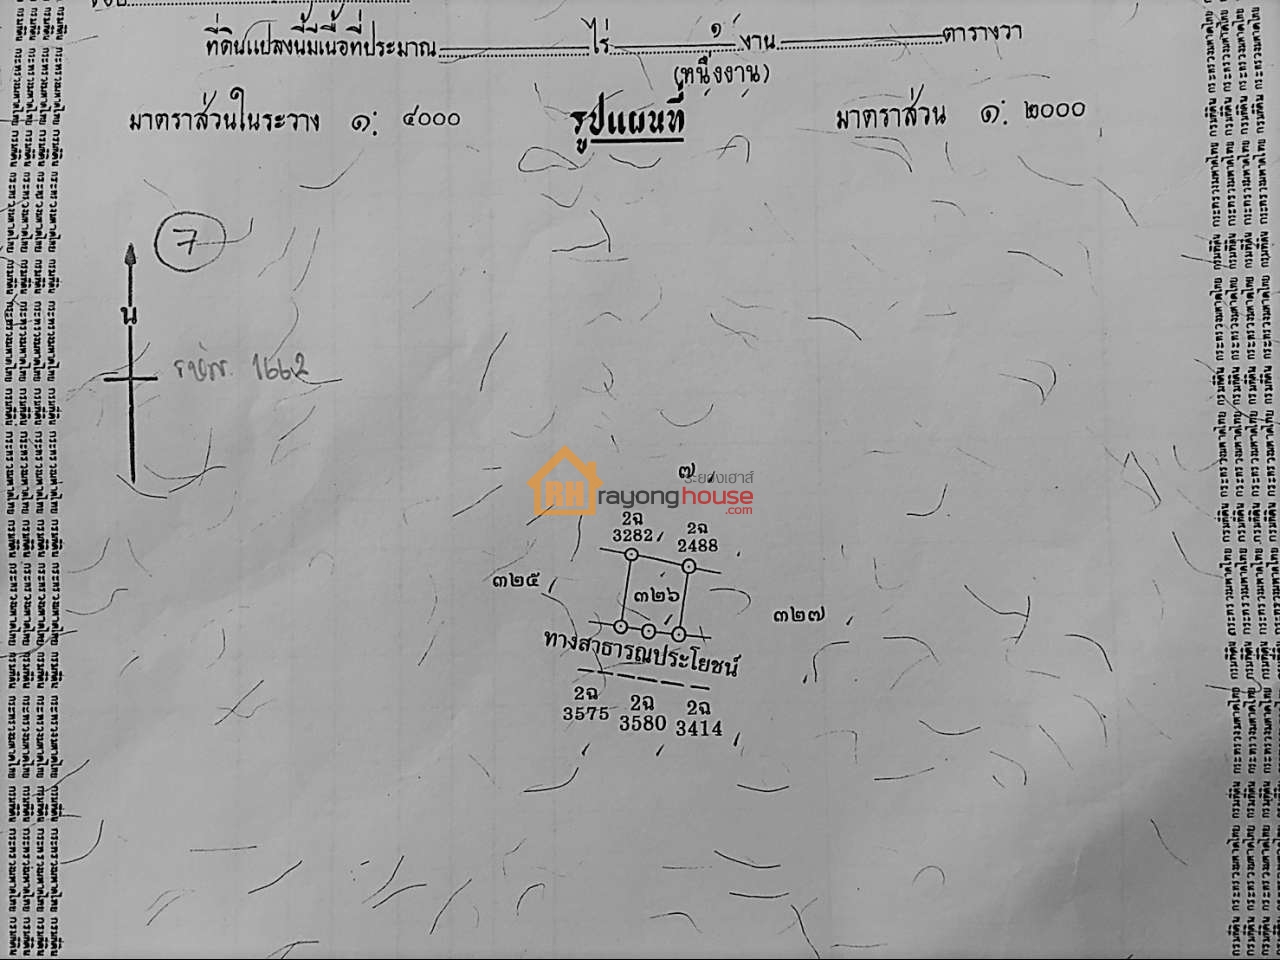 ที่ดินแปลงนี้มีเนื้อที่ประมาณ ไร่ ๑ งาน ตารางวา
(หนึ่งงาน)
มาตราส่วนในระวาง ๑: ๔๐๐๐ รูปแผนที่ มาตราส่วน ๑: ๒๐๐๐
7
น
1662
๗
ระยองเฮาส์
RH rayonghouse
.com
2ฉ 2ฉ
3282 2488
๓๒๕ ๓๒๖ ๓๒๗
ทางสาธารณประโยชน์
2ฉ 2ฉ 2ฉ
3575 3580 3414
กรมที่ดิน กระทรวงมหาดไทย